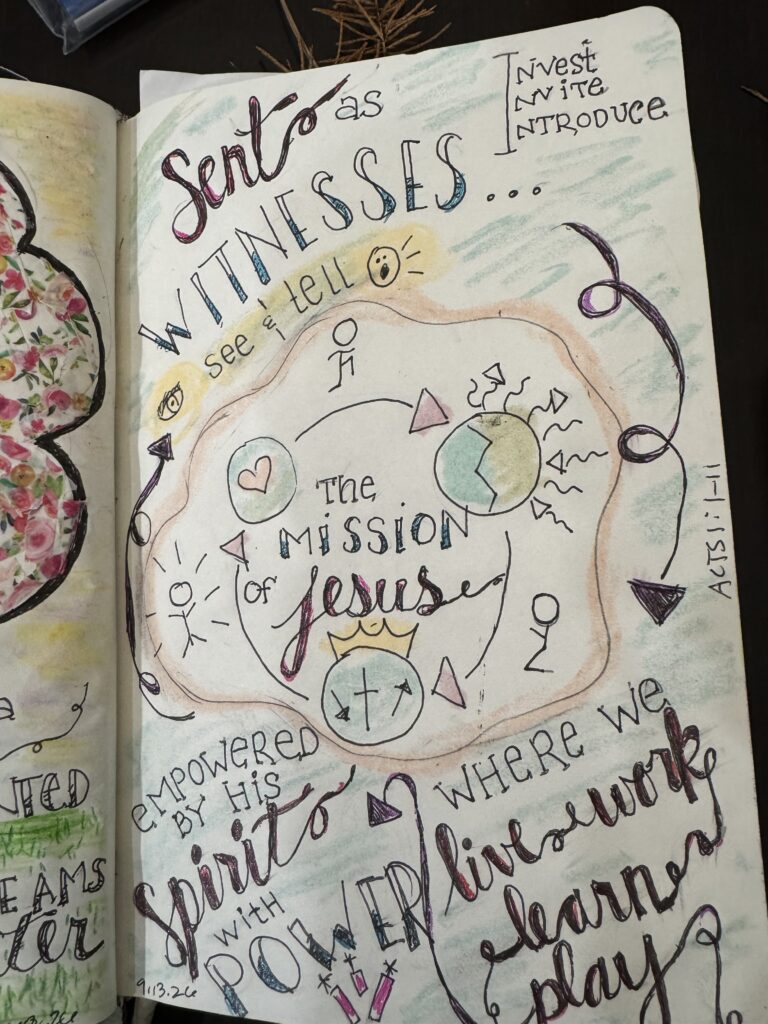 Sent as
INVEST
INVITE
INTRODUCE
WITNESSES...
see & tell
The
MISSION
of
Jesus
ACTS 1:1-11
EMPOWERED
BY HIS
Spirit
with
POWER
WHERE WE
live work
learn
play
9.13.26
NTED
EAMS
ter